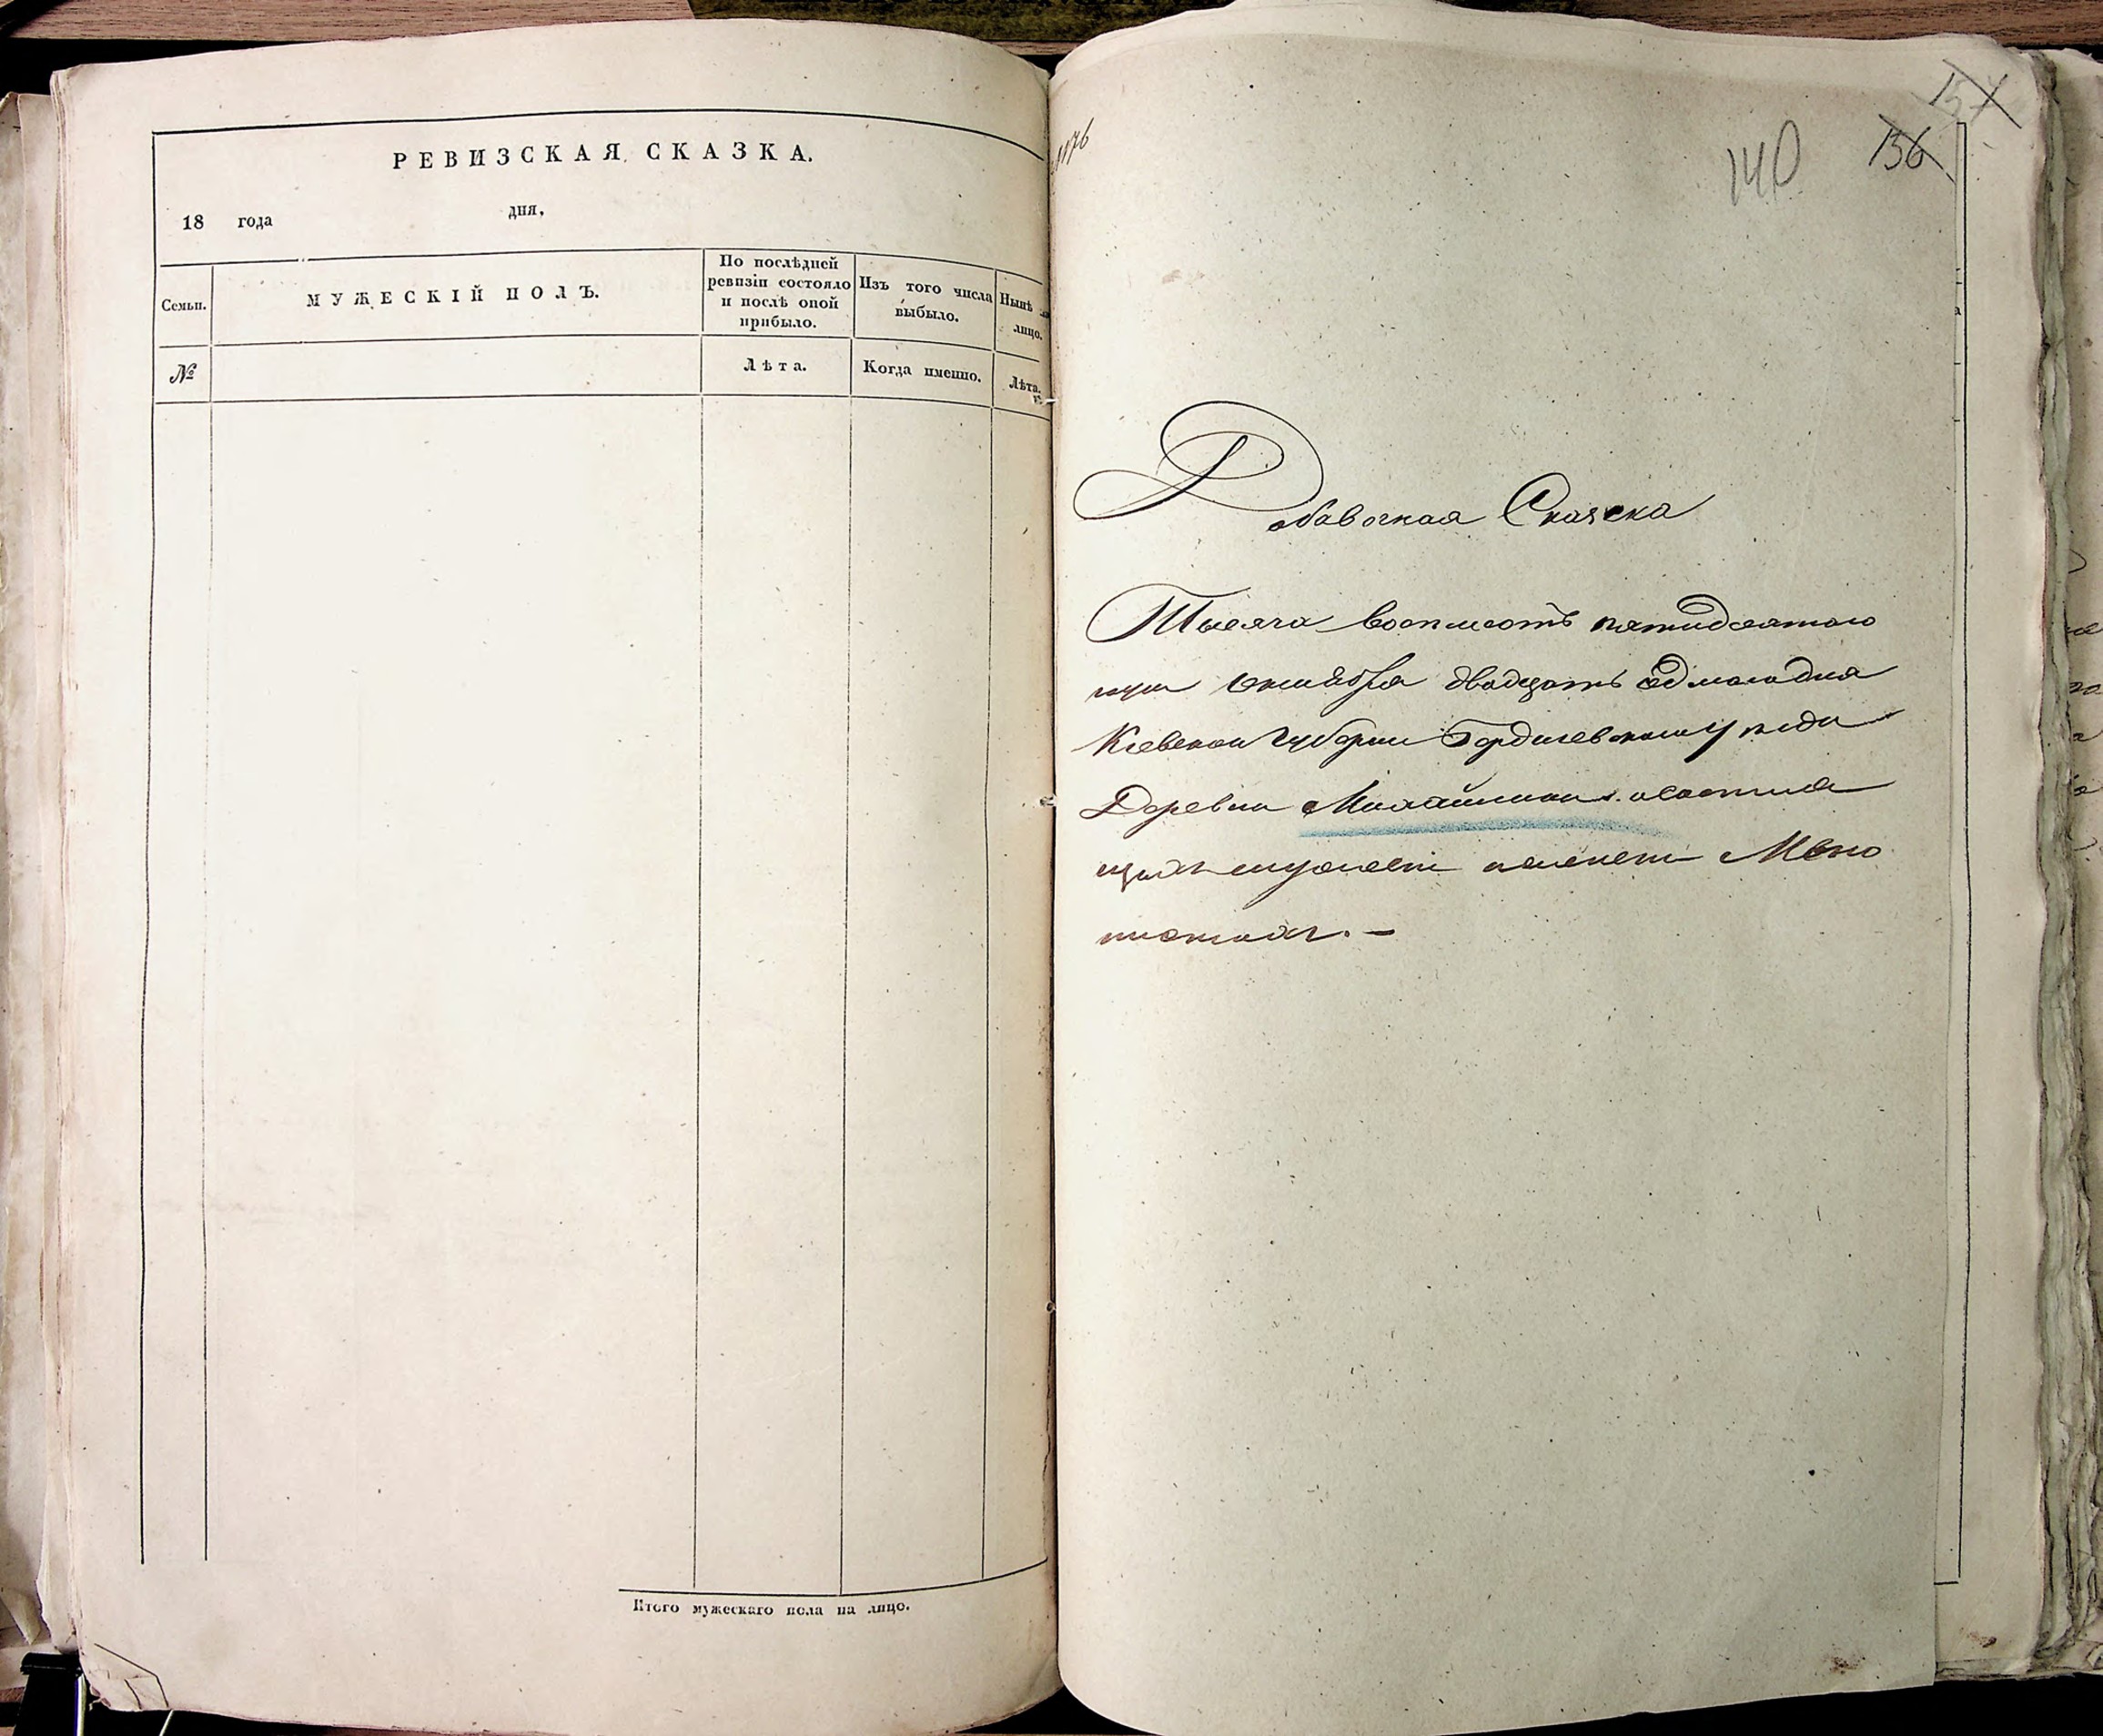 РЕВИЗСКАЯ СКАЗКА.
18 года дня,
Семьи.
МУЖЕСКІЙ ПОЛЪ.
По послѣдней ревизіи состояло и послѣ оной прибыло.
Изъ того числа выбыло.
Нынѣ на лицо.
№
Лѣта.
Когда именно.
Лѣта.
Итого мужескаго пола на лицо.
1176
157
156
140
Добавочная Сказка
Тысяча восемьсотъ пятидесятого
года октября двадцать одного дня
Кіевской Губерніи Бердичевского уезда
Деревни